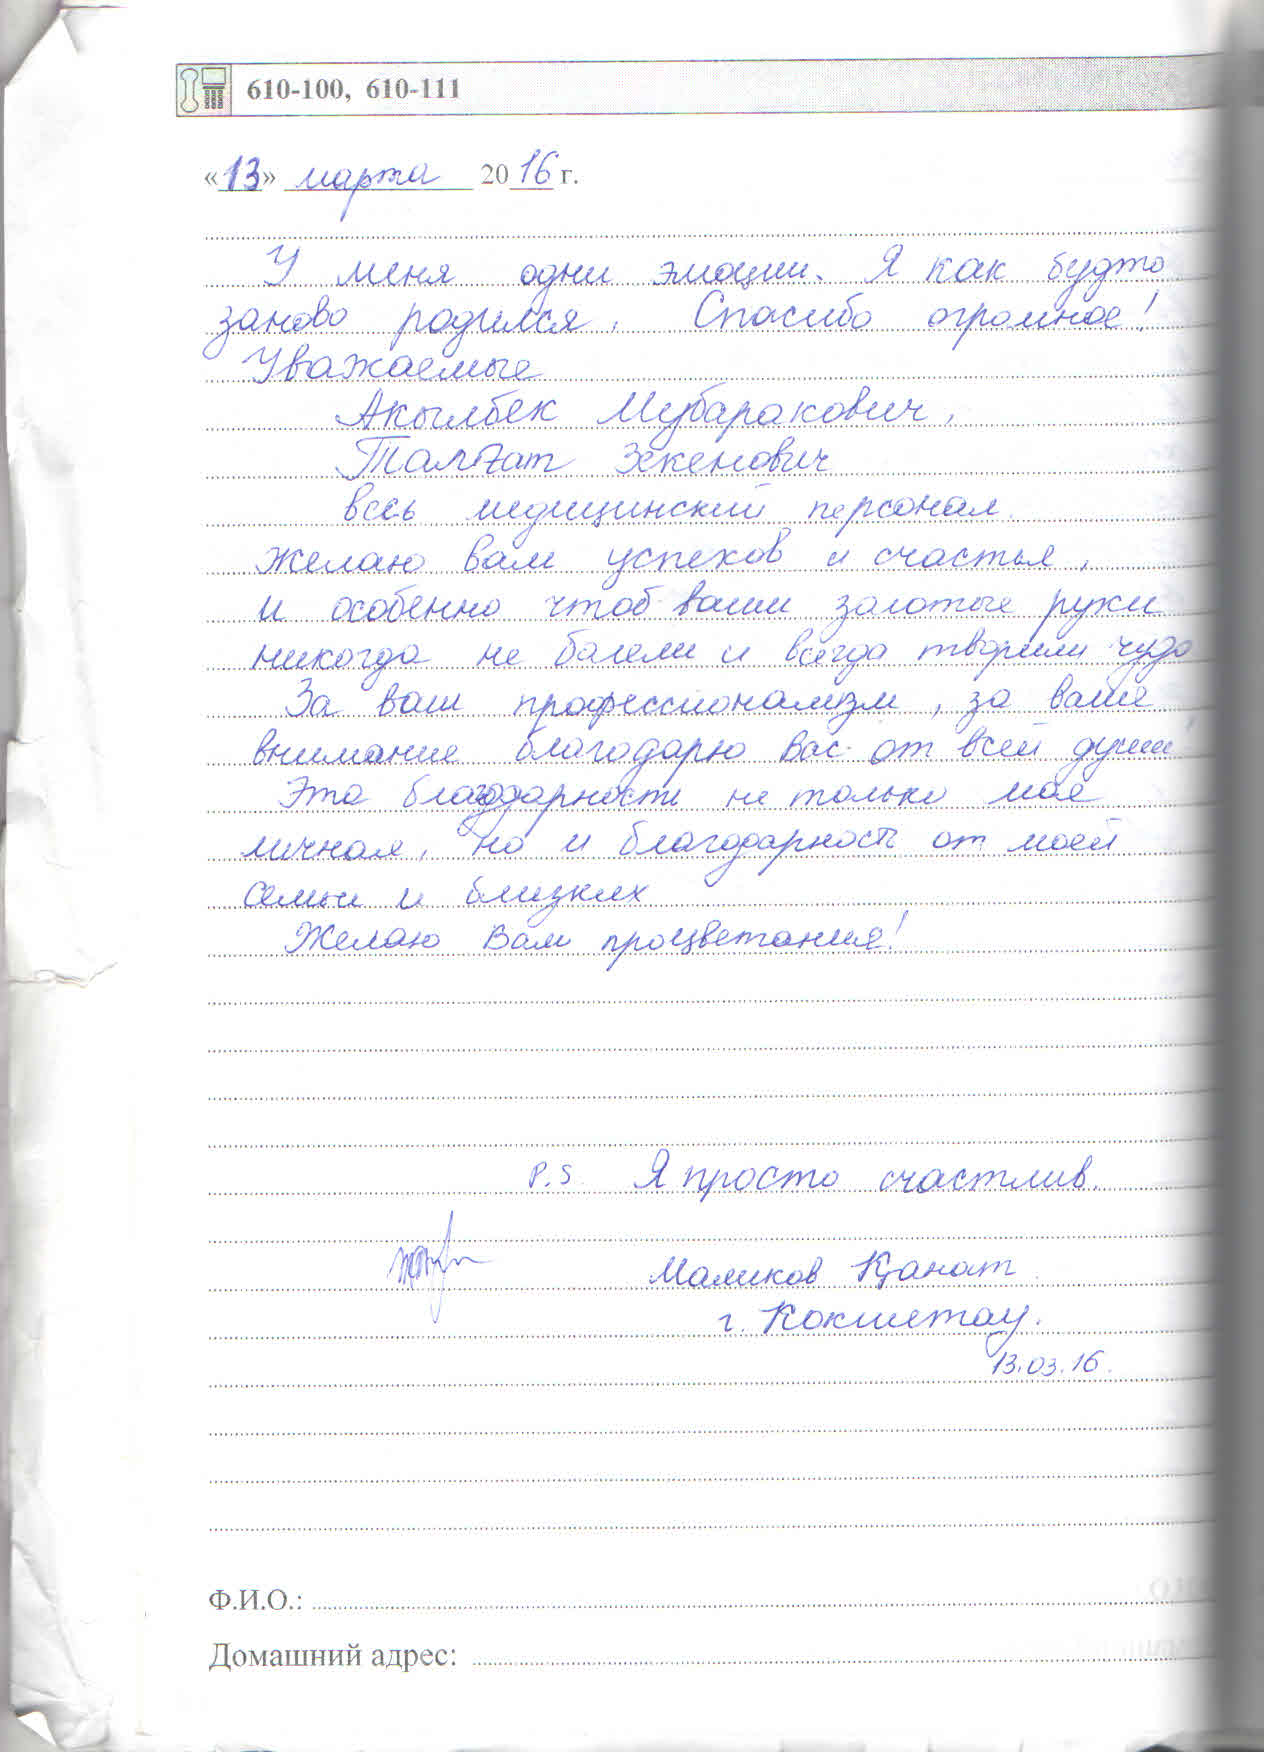 610-100, 610-111
«13» марта 2016 г.
У меня одни эмоции. Я как будто
заново родился. Спасибо огромное!
Уважаемые
Акылбек Мубаракович,
Талгат Зекенович
весь медицинский персонал
желаю вам успехов и счастья,
и особенно чтоб ваши золотые руки
никогда не балели и всегда творили чудо
За ваш профессионализм, за ваше
внимание благодарю Вас от всей души!
Эта благодарность не только мое
личная, но и благодарность от моей
семьи и близких
Желаю Вам процветания!
P.S. Я просто счастлив.
Маликов Қанат
г. Кокшетау.
13.03.16.
Ф.И.О.:
Домашний адрес: